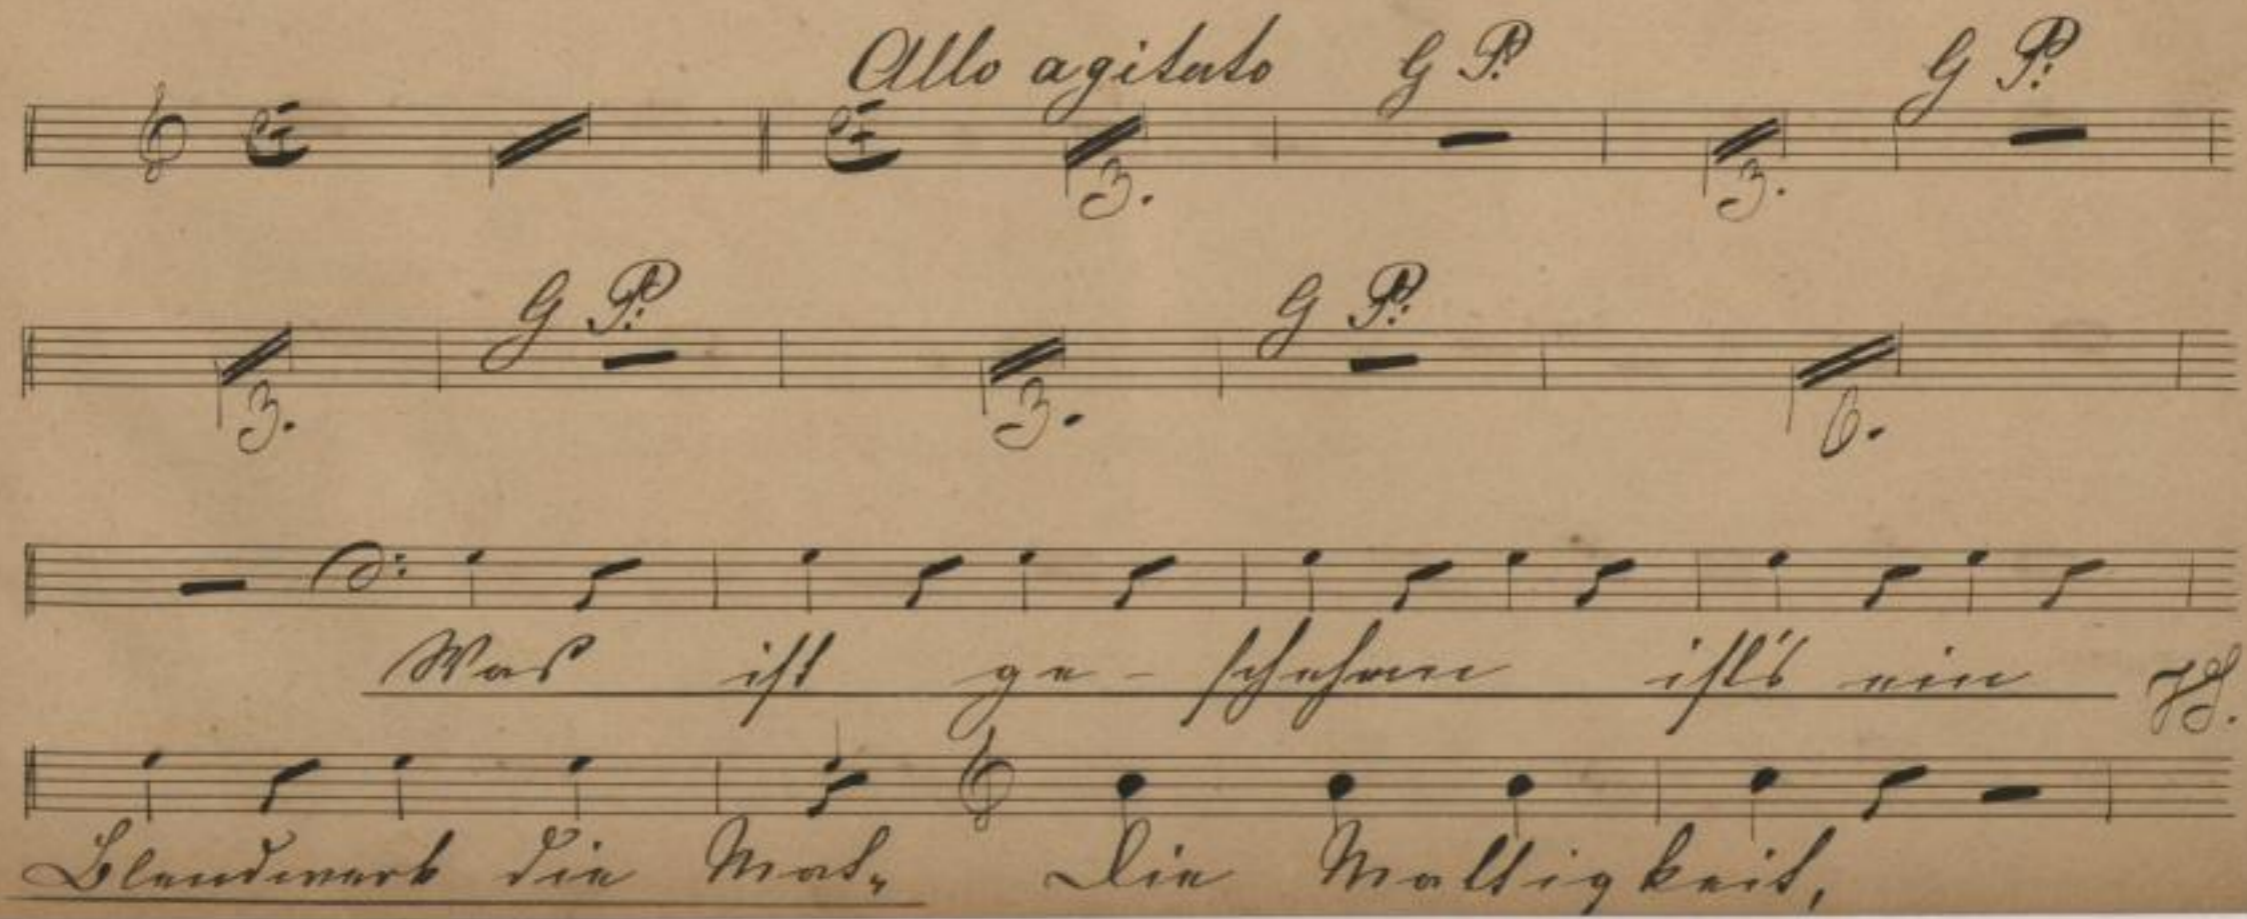 Allo agitato G P. G P:
3. 3.
G P: G P:
3. 3. 6.
Was ist ge - schehen ist's ein
Blendwerk die Mat- Die Mattigkeit,